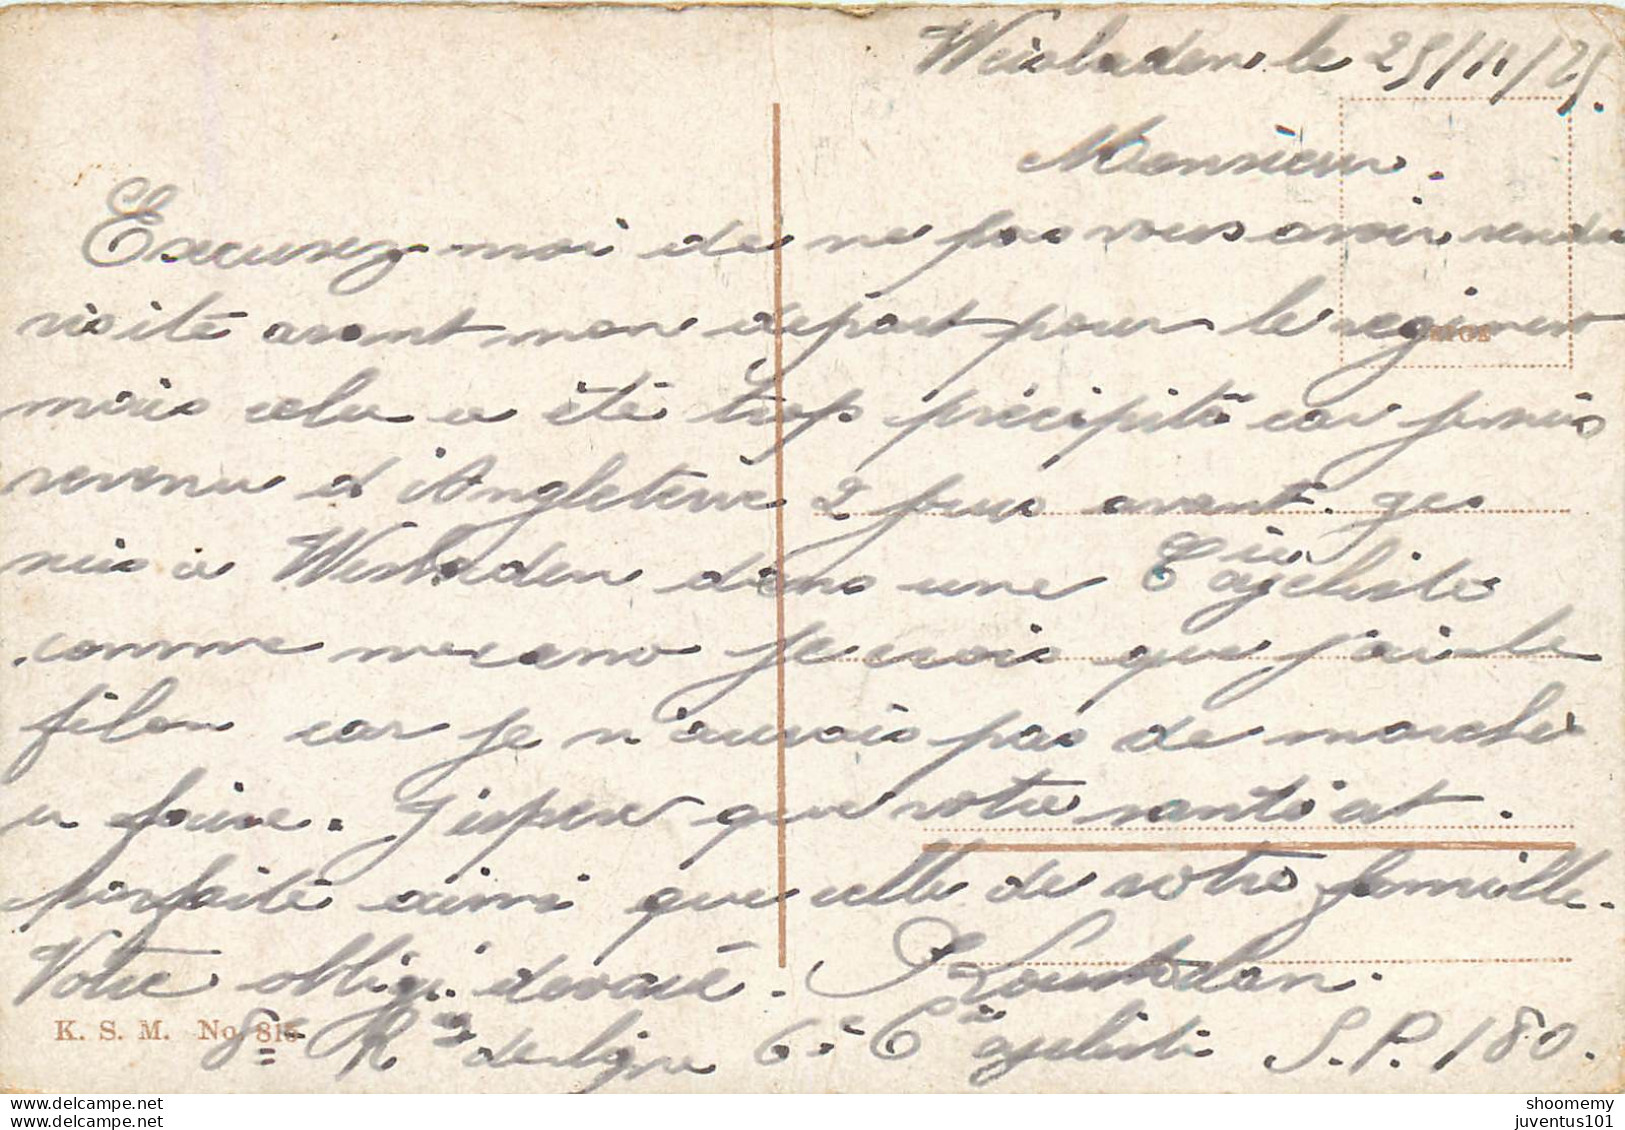 Weisbaden le 25/11/25.
Monsieur.
Excusez moi de ne pas vous avoir rendu
visite avant mon depart pour le regiment
mais cela a été trop précipité car je suis
revenu d'Angleterre 2 jours avant. ge
suis a Wesbaden dans une Cie cycliste
comme mecano je crois que j'ai le
filon car je n'aurais pas de marche
a faire. J'espere que votre santé est.
parfaite ainsi que celle de votre famille.
Votre obligé devoué.
K. S. M. No. 815
8e Rt de ligne 6e Cie cycliste S.P. 180.
shoomemy
juventus101